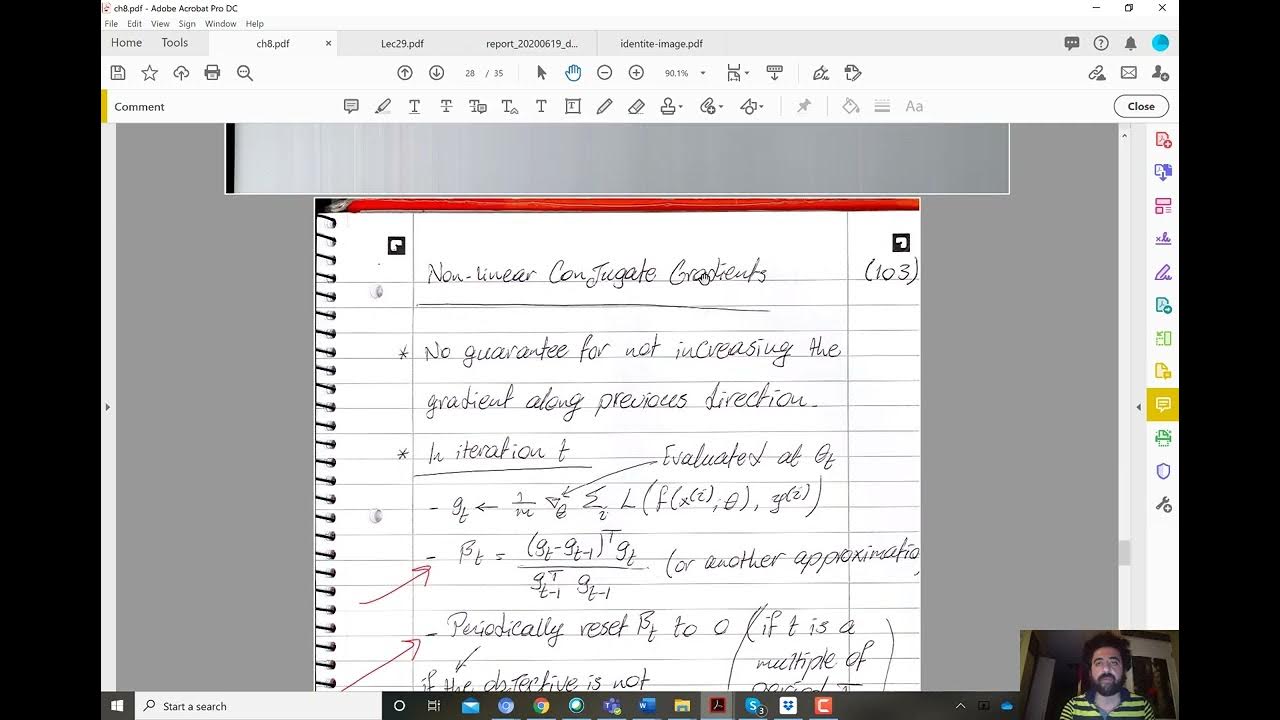 ch8.pdf - Adobe Acrobat Pro DC
File Edit View Sign Window Help
Home Tools ch8.pdf × Lec29.pdf report_20200619_d... identite-image.pdf
28 / 35 90.1%
Comment Close
Non-linear Conjugate Gradients (103)
* No guarantee for not increasing the
gradient along previous direction.
* In iteration t Evaluated at θt
- gt ← 1/m ∇θ Σi L(f(x(i); θ), y(i))
- βt = (gt-gt-1)T gt / gTt-1 gt-1 (or another approximatio
- Periodically reset βt to 0 (if t is a
multiple of
if the objective is not
Start a search